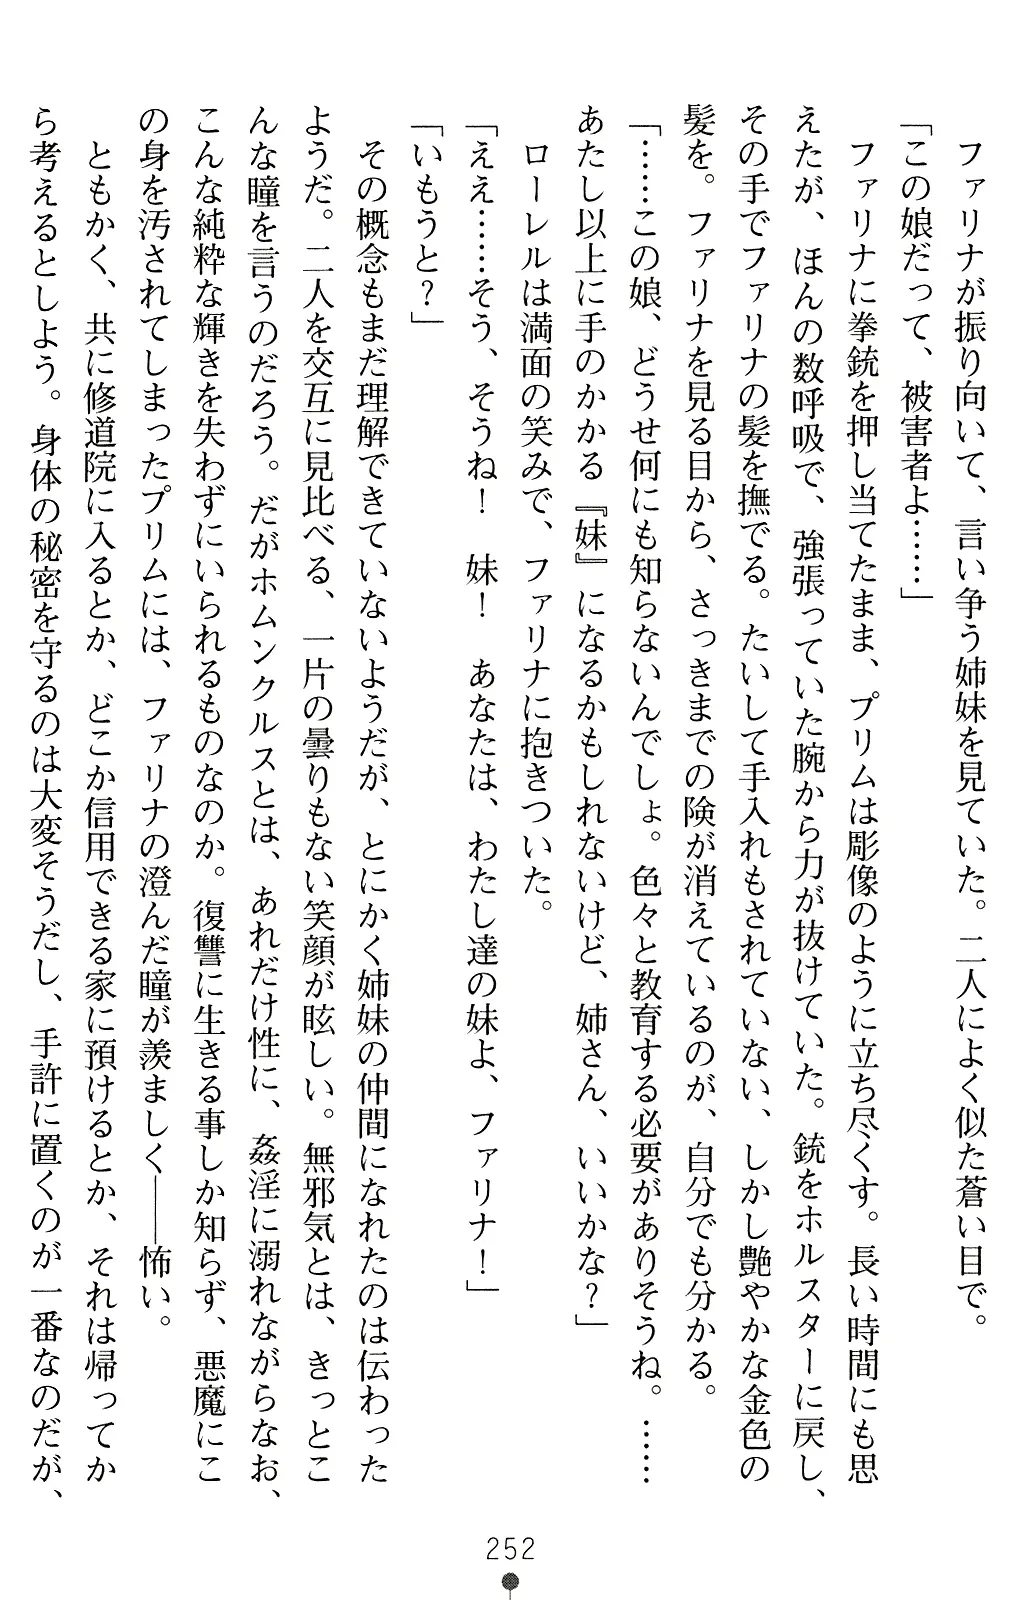 ファリナが振り向いて、言い争う姉妹を見ていた。二人によく似た蒼い目で。
「この娘だって、被害者よ……」
ファリナに拳銃を押し当てたまま、プリムは彫像のように立ち尽くす。長い時間にも思
えたが、ほんの数呼吸で、強張っていた腕から力が抜けていた。銃をホルスターに戻し、
その手でファリナの髪を撫でる。たいして手入れもされていない、しかし艶やかな金色の
髪を。ファリナを見る目から、さっきまでの険が消えているのが、自分でも分かる。
「……この娘、どうせ何にも知らないんでしょ。色々と教育する必要がありそうね。……
あたし以上に手のかかる『妹』になるかもしれないけど、姉さん、いいかな？」
ローレルは満面の笑みで、ファリナに抱きついた。
「ええ……そう、そうね！　妹！　あなたは、わたし達の妹よ、ファリナ！」
「いもうと？」
その概念もまだ理解できていないようだが、とにかく姉妹の仲間になれたのは伝わった
ようだ。二人を交互に見比べる、一片の曇りもない笑顔が眩しい。無邪気とは、きっとこ
んな瞳を言うのだろう。だがホムンクルスとは、あれだけ性に、姦淫に溺れながらなお、
こんな純粋な輝きを失わずにいられるものなのか。復讐に生きる事しか知らず、悪魔にこ
の身を汚されてしまったプリムには、ファリナの澄んだ瞳が羨ましく――怖い。
ともかく、共に修道院に入るとか、どこか信用できる家に預けるとか、それは帰ってか
ら考えるとしよう。身体の秘密を守るのは大変そうだし、手許に置くのが一番なのだが、
252